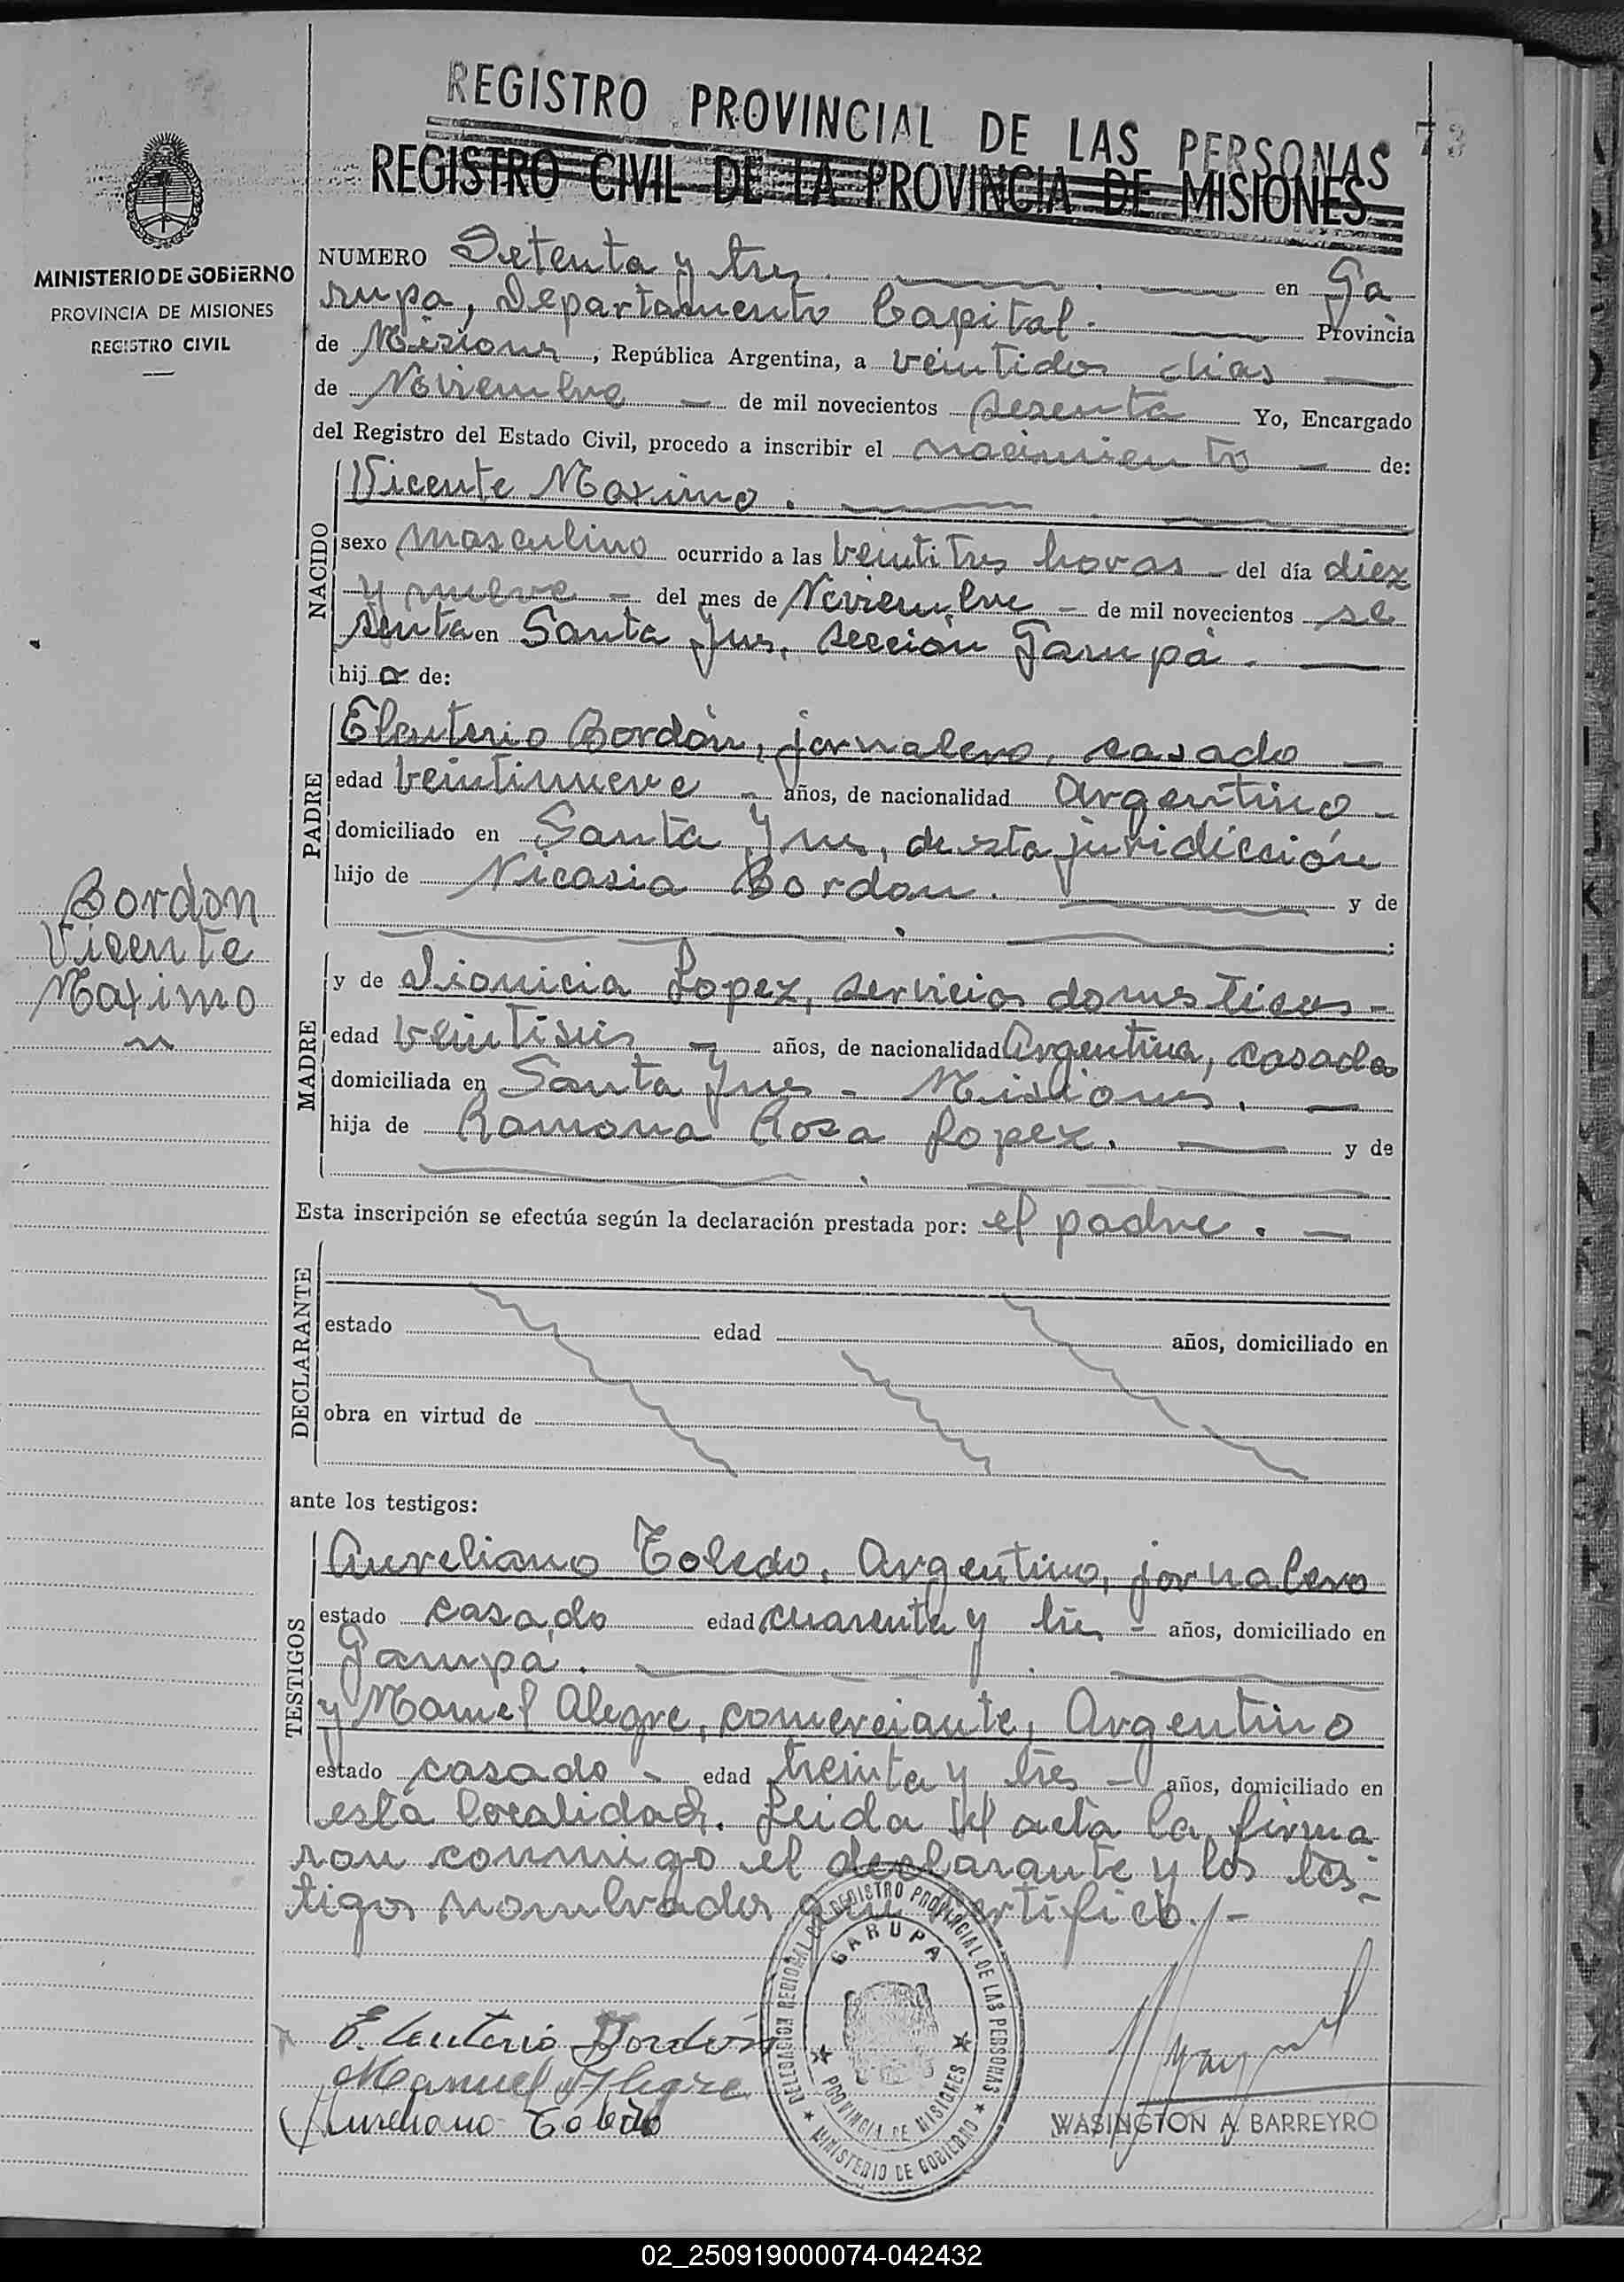 REGISTRO PROVINCIAL DE LAS PERSONAS
73
REGISTRO CIVIL DE LA PROVINCIA DE MISIONES
MINISTERIO DE GOBIERNO
PROVINCIA DE MISIONES
REGISTRO CIVIL
NUMERO Setenta y tres. en Ga
rupa, Departamento Capital. Provincia
de Misiones, República Argentina, a veintidos dias
de Noviembre de mil novecientos sesenta Yo, Encargado
del Registro del Estado Civil, procedo a inscribir el nacimiento de:
NACIDO
Vicente Maximo.
sexo masculino ocurrido a las veintitres horas del día diez
y nueve del mes de Noviembre de mil novecientos se
senta en Santa Ynes, sección Garupá.
hij o de:
PADRE
Eleuterio Bordón, jornalero, casado
edad veintinueve años, de nacionalidad Argentino
domiciliado en Santa Ynes, de esta juridicción
hijo de Nicasia Bordon. y de
Bordon
Vicente
Maximo
MADRE
y de Dionicia Lopez, servicios domesticos
edad veintiseis años, de nacionalidad Argentina, casada
domiciliada en Santa Ynes - Misiones.
hija de Ramona Rosa Lopez. y de
Esta inscripción se efectúa según la declaración prestada por: el padre.
DECLARANTE
estado edad años, domiciliado en
obra en virtud de
ante los testigos:
TESTIGOS
Aureliano Toledo, Argentino, jornalero
estado casado edad cuarenta y tres años, domiciliado en
Garupá.
y Manuel Alegre, comerciante, Argentino
estado casado edad treinta y tres años, domiciliado en
esta localidad. Leida el acta la firma
ron conmigo el declarante y los tes-
tigos nombrados que certifico./-
DELEGACION REGIONAL DEL REGISTRO PROVINCIAL DE LAS PERSONAS
GARUPA
PROVINCIA DE MISIONES
MINISTERIO DE GOBIERNO
Eleuterio Bordón
Manuel Alegre
Aureliano Toledo
WASINGTON A. BARREYRO
02_250919000074-042432